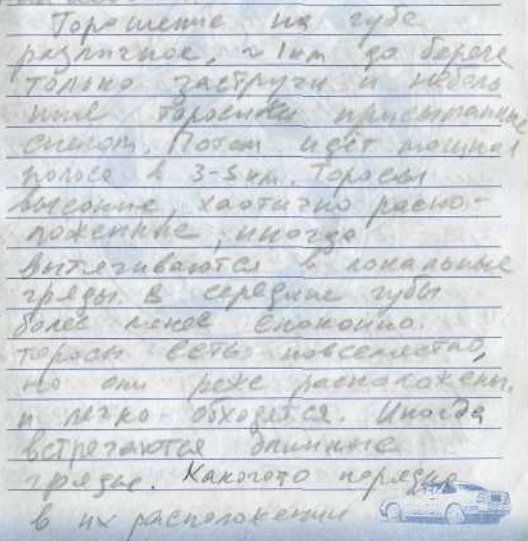 Торошение на губе
различное, ~ 1 км до берега
только заструги и неболь
шие торосики присыпанные
снегом. Потом идёт мощная
полоса в 3-5 км. Торосы
высокие, хаотично распо-
ложенные, иногда
вытягиваются в локальные
гряды. В середине губы
более менее спокойно.
торосы есть повсеместно,
но они реже расположены.
и легко обходятся. Иногда
встречаются длинные
гряды. Какогото порядка
в их расположении